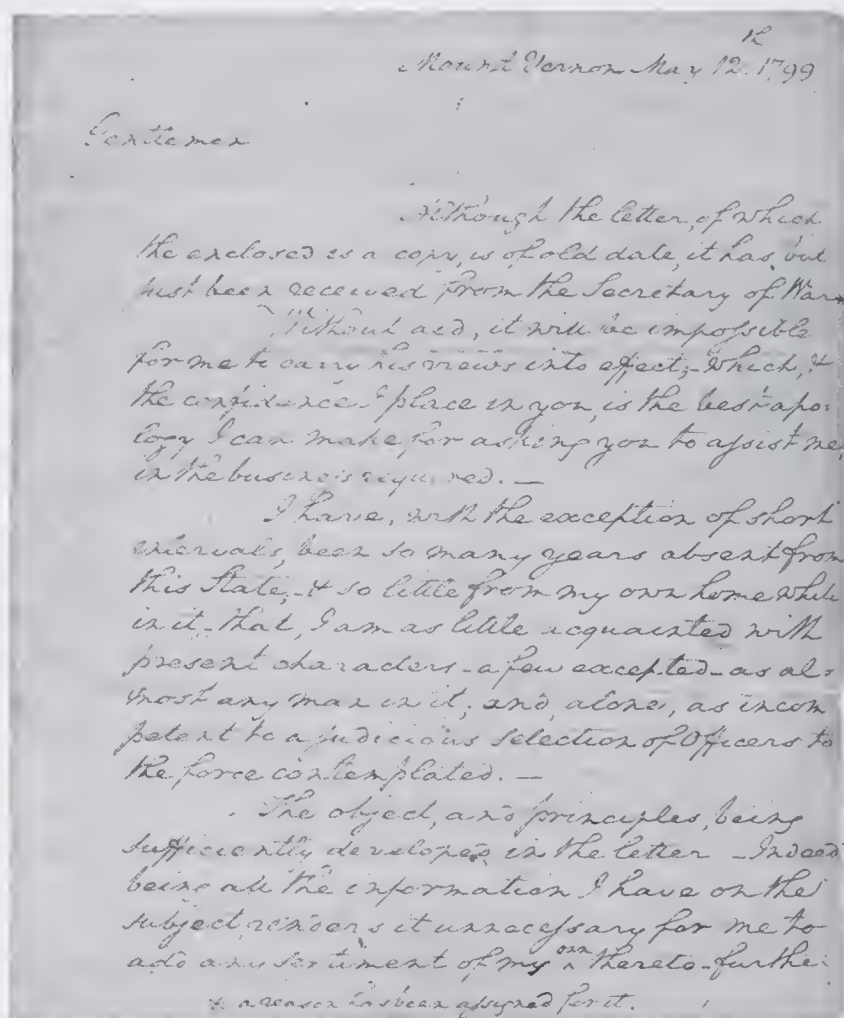 Mount Vernon May 12th. 1799
Gentlemen
Although the letter, of which
the enclosed is a copy, is of old date, it has but
just been received from the Secretary of War*
Without aid, it will be impossible
for me to carry his views into effect;—Which, &
the confidence I place in you, is the best apo:
logy I can make for asking you to assist me,
in the business required.—
I have, with the exception of short
intervals, been so many years absent from
this State,—& so little from my own home while
in it—that, I am as little acquainted with
present characters—a few excepted—as al:
most any man in it; and, alone, as incom
petent to a judicious selection of Officers to
the force contemplated.—
The object, and principles, being
sufficiently developed in the letter—Indeed
being all the information I have on the
subject renders it unnecessary for me to
add any sentiment of my own thereto—further
* a reason has been assigned for it.